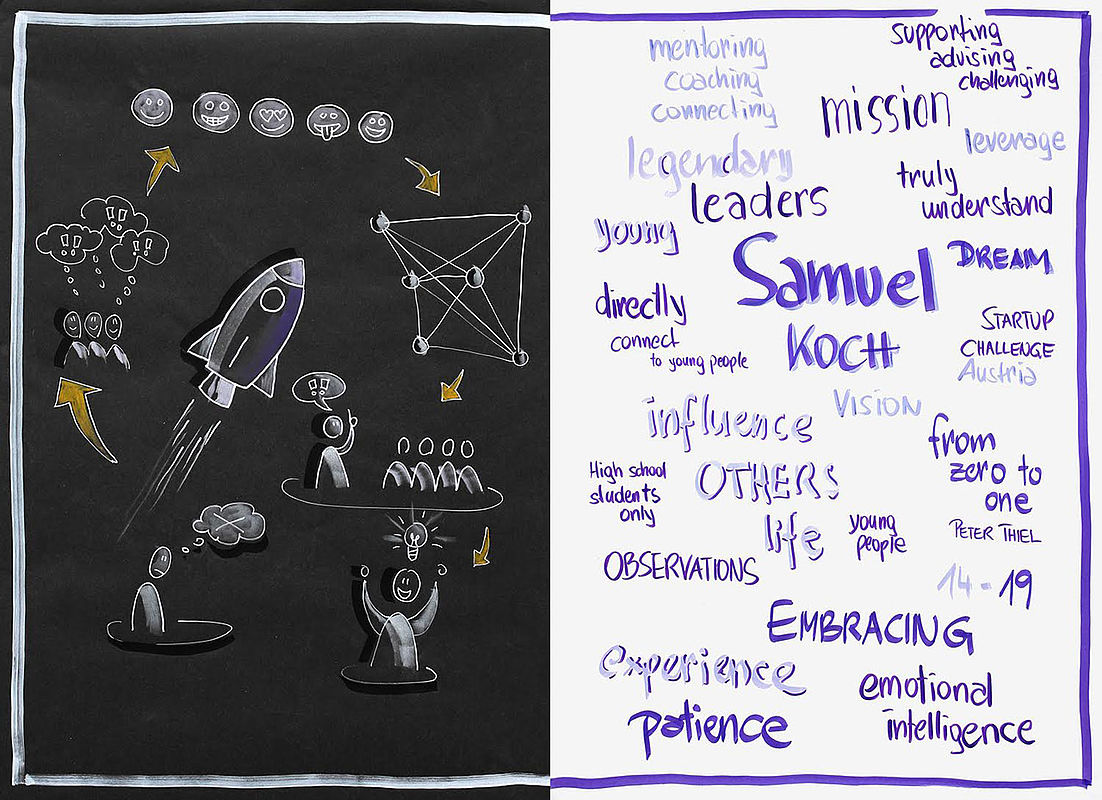 mentoring
coaching
connecting
supporting
advising
challenging
mission
leverage
legendary
leaders
truly
understand
young
Samuel
Koch
DREAM
directly
connect
to young people
STARTUP
CHALLENGE
Austria
VISION
influence
OTHERS
from
zero to
one
PETER THIEL
High school
students
only
life
young
people
OBSERVATIONS
14-19
EMBRACING
experience
patience
emotional
intelligence